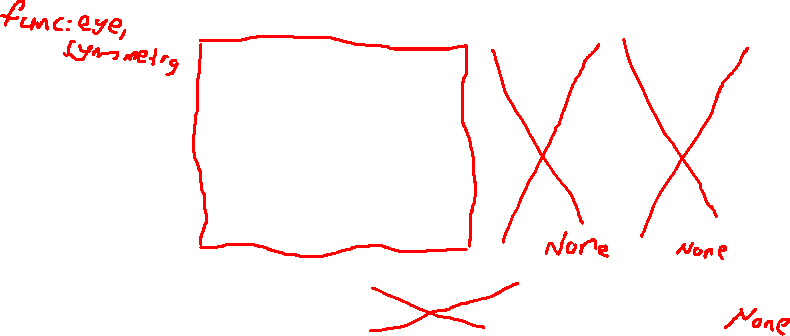 func: eye,
symmetry
None
None
None